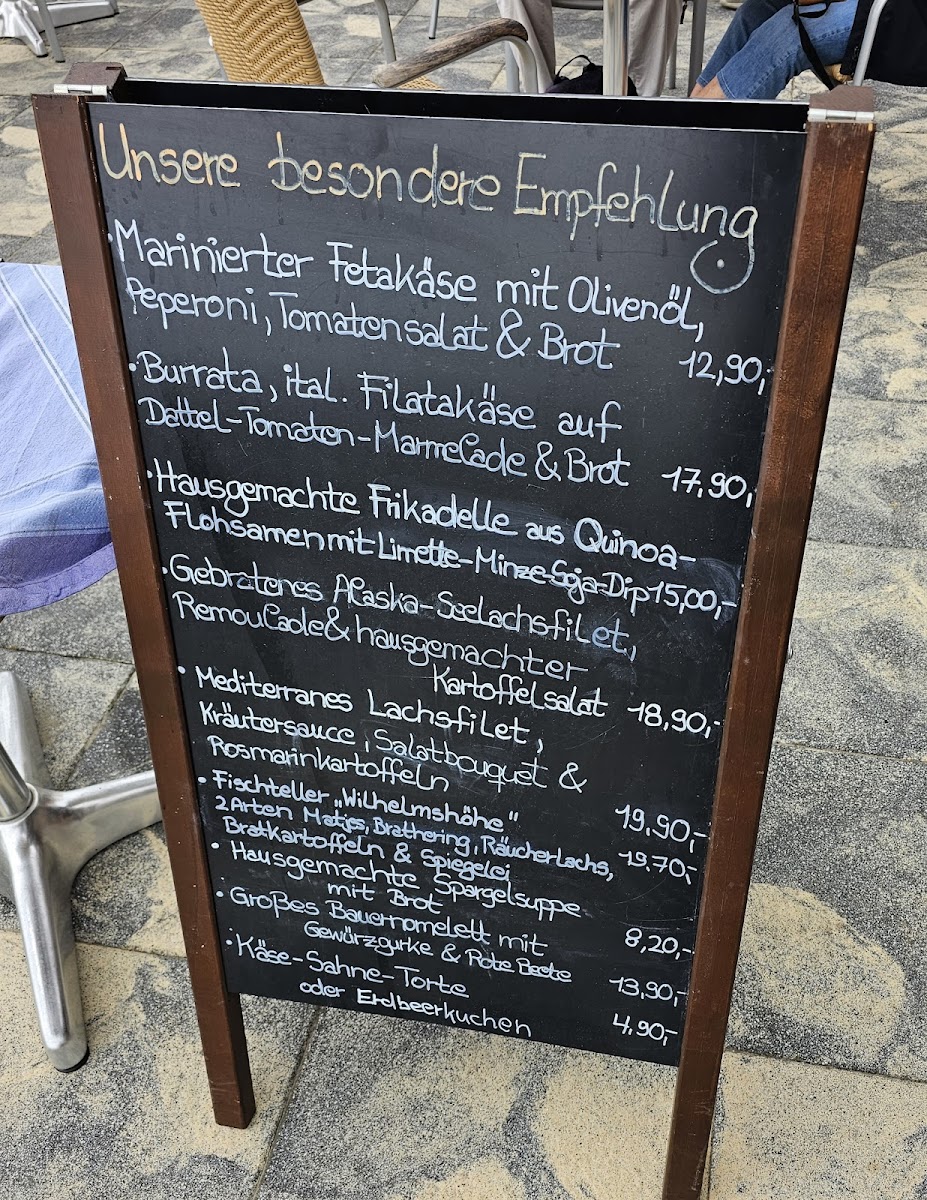 Unsere besondere Empfehlung
• Marinierter Fetakäse mit Olivenöl,
Peperoni, Tomatensalat & Brot 12,90,-
• Burrata, ital. Filatakäse auf
Dattel-Tomaten-Marmelade & Brot 17,90,-
• Hausgemachte Frikadelle aus Quinoa-
Flohsamen mit Limette-Minze-Soja-Dip 15,00,-
• Gebratenes Alaska-Seelachsfilet,
Remoulade & hausgemachter
Kartoffelsalat 18,90,-
• Mediterranes Lachsfilet,
Kräutersauce, Salatbouquet &
Rosmarinkartoffeln 19,90,-
• Fischteller „Wilhelmshöhe"
2 Arten Matjes, Brathering, Räucherlachs,
Bratkartoffeln & Spiegelei 19.70,-
• Hausgemachte Spargelsuppe
mit Brot 8,20,-
• Großes Bauernomelett mit
Gewürzgurke & Rote Beete 13,90,-
• Käse-Sahne-Torte
oder Erdbeerkuchen 4,90,-